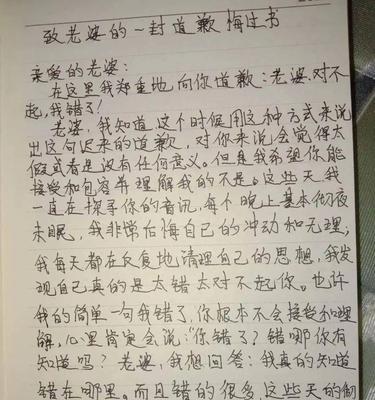 致老婆的一封道歉悔过书
亲爱的老婆:
在这里我郑重地,向你道歉:老婆,对不
起,我错了!
老婆,我知道这个时候用这种方式来说
出这句迟来的道歉,对你来说会觉得太
假或者是没有任何意义。但是我希望你能
接受和包容并理解我的不是。这些天我
一直在探寻你的音讯,每个晚上基本彻夜
未眠,我非常后悔自己的冲动和无理;
我每天都在反复地清理自己的思想,我发
现自己真的是太错太对不起你。也许
我的简单一句我错了,你根本不会接受和理
解,心里肯定会说:“你错了?错哪你有
知道吗?老婆,我想回答:我真的知道
错在哪里。而且错的很多,这些天的